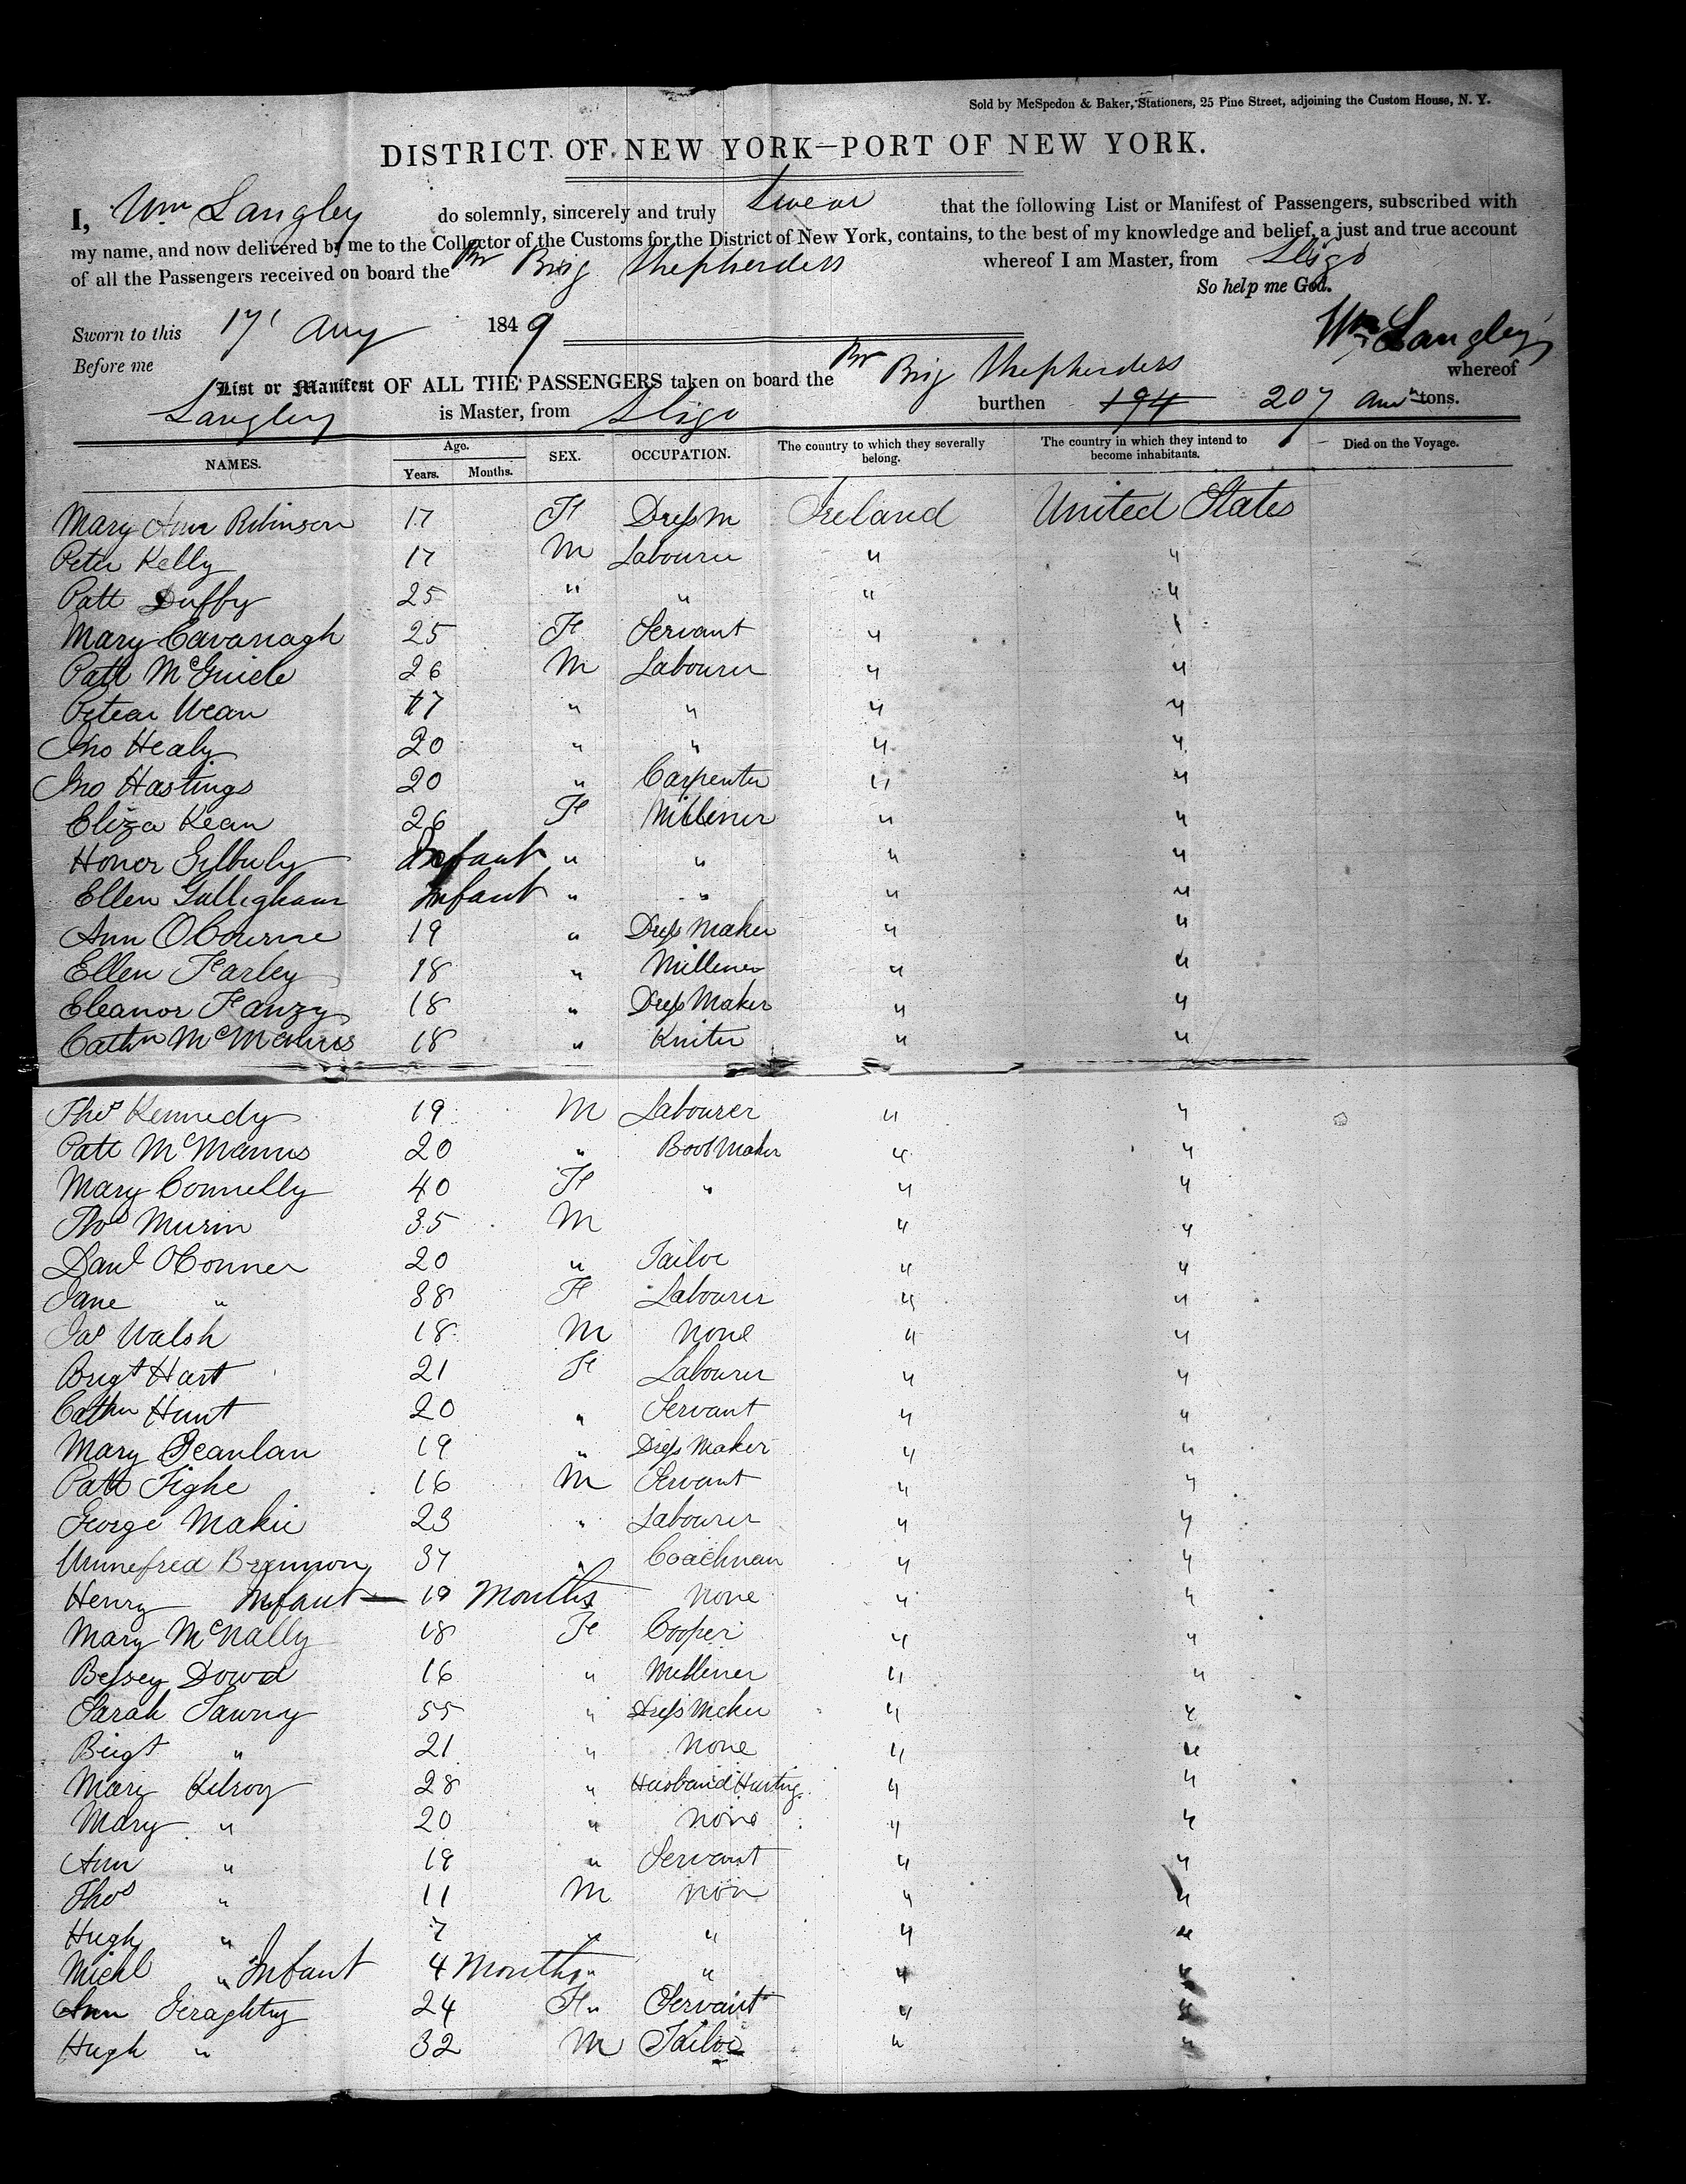 Sold by McSpedon & Baker, Stationers, 25 Pine Street, adjoining the Custom House, N. Y.
DISTRICT OF NEW YORK—PORT OF NEW YORK.
I, Wm Langley do solemnly, sincerely and truly Swear that the following List or Manifest of Passengers, subscribed with
my name, and now delivered by me to the Collector of the Customs for the District of New York, contains, to the best of my knowledge and belief, a just and true account
of all the Passengers received on board the Br Brig Shepherdess whereof I am Master, from Sligo
So help me God.
Sworn to this 17 Aug 1849
Wm Langley
Before me
List or Manifest OF ALL THE PASSENGERS taken on board the Br Brig Shepherdess whereof
Langley is Master, from Sligo burthen 194 207 tons.
NAMES. Age. Years. Months. SEX. OCCUPATION. The country to which they severally belong. The country in which they intend to become inhabitants. Died on the Voyage.
Mary Ann Robinson 17 F Dress M Ireland United States
Peter Kelly 17 M Labourer " "
Patt Duffy 25 " " " "
Mary Cavanagh 25 F Servant " "
Patt McGuide 26 M Labourer " "
17 " " " "
Jno Healy 20 " " " "
Jno Hastings 20 " Carpenter " "
Eliza Kean 26 F Millener " "
Honor Infant " " " "
Ellen Galligham Infant " " " "
Ann OBourne 19 " Dress Maker " "
Ellen Farley 18 " Millener " "
Eleanor Fanzy 18 " Dress Maker " "
Cathn McManus 18 " Kniter " "
Thos Kennedy 19 M Labourer " "
Patt McManus 20 " Boot Maker " "
Mary Connelly 40 F " " "
Thos Murin 35 M " "
Danl OConner 20 " Tailor " "
Jane " 38 F Labourer " "
Jas Walsh 18 M None " "
Brigt Hart 21 F Labourer " "
Cathn Hunt 20 " Servant " "
Mary Scanlan 19 " Dress Maker " "
Patt Tighe 16 M Servant " "
George Makie 23 " Labourer " "
Winnefred Brennon 37 " Coachman " "
Henry Infant — 19 Months None " "
Mary McNally 18 F Cooper " "
Bessey Dowd 16 " Millener " "
Sarah Tawny 55 " Dress Maker " "
Brigt " 21 " None " "
Mary Kilroy 28 " " "
Mary " 20 " None " "
Ann " 18 " Servant " "
Thos " 11 M Non " "
Hugh " 7 " " " "
Michl " Infant 4 Months " " " "
Ann Geraghty 24 F " Servant " "
Hugh " 32 M Tailor " "